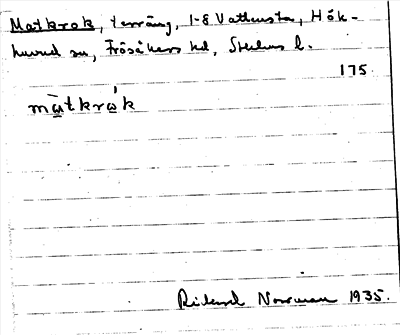 Matkrok, terräng, 1-8 Vattensta, Hök-
huvud sn, Frösåkers hd, Sthlms l.
175.
màtkrók
Rikard Norrman 1935.